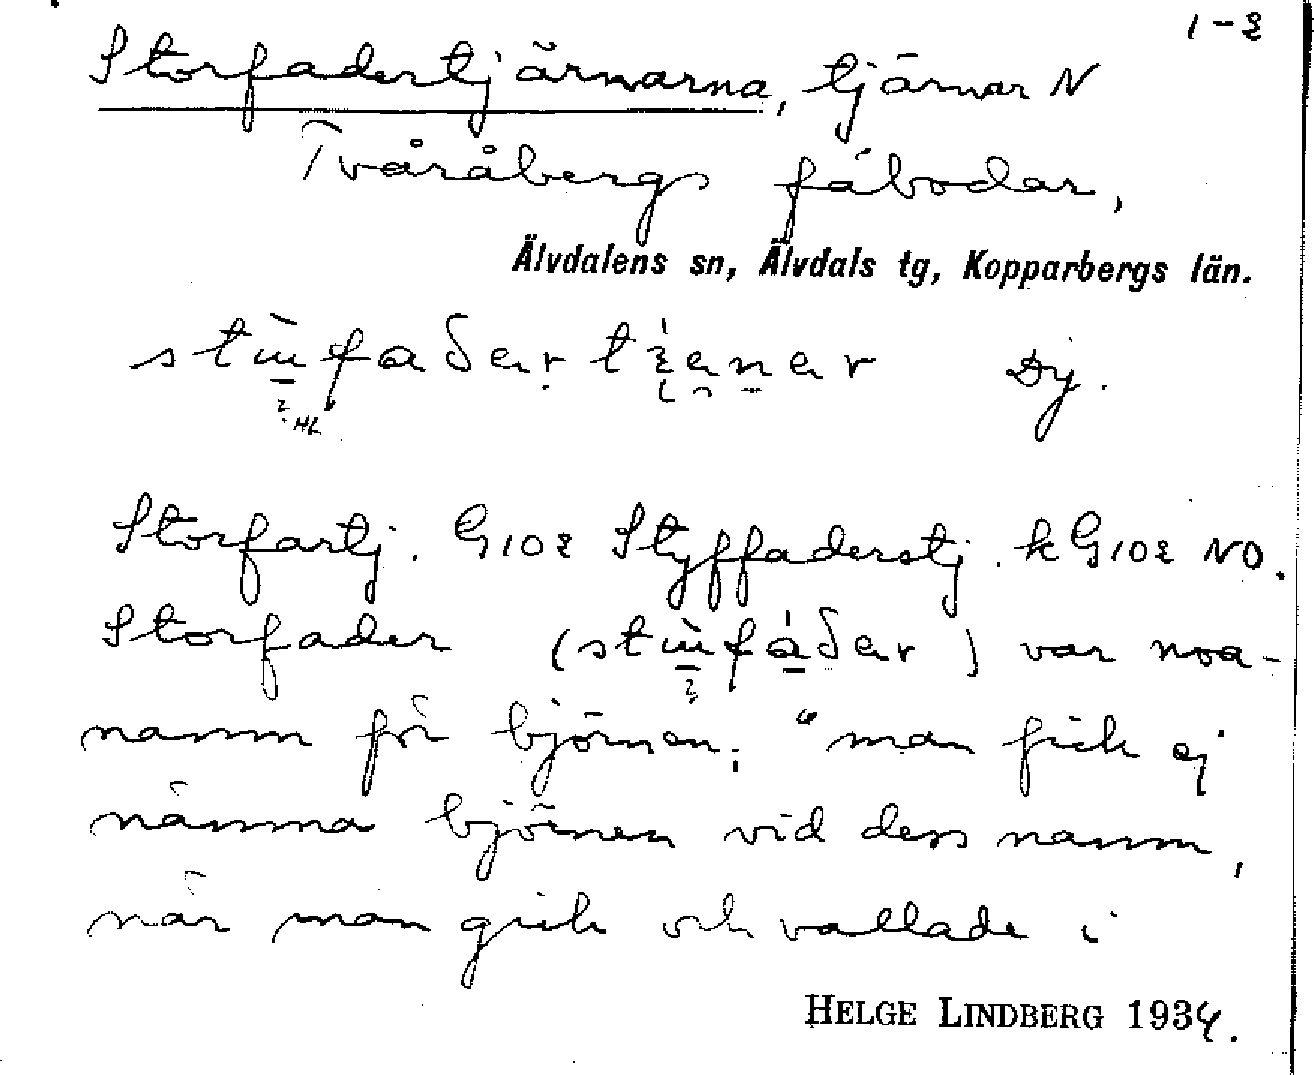 1-2
Storfadertjärnarna, tjärnar N
Tvåråbergs fäbodar,
Älvdalens sn, Älvdals tg, Kopparbergs län.
Dy.
Storfartj. G102 Styffaderstj. k G102 NO.
Storfader var noa-
namn för björnen; "man fick ej
nämna björnen vid dess namn,
när man gick och vallade i
HELGE LINDBERG 1934.